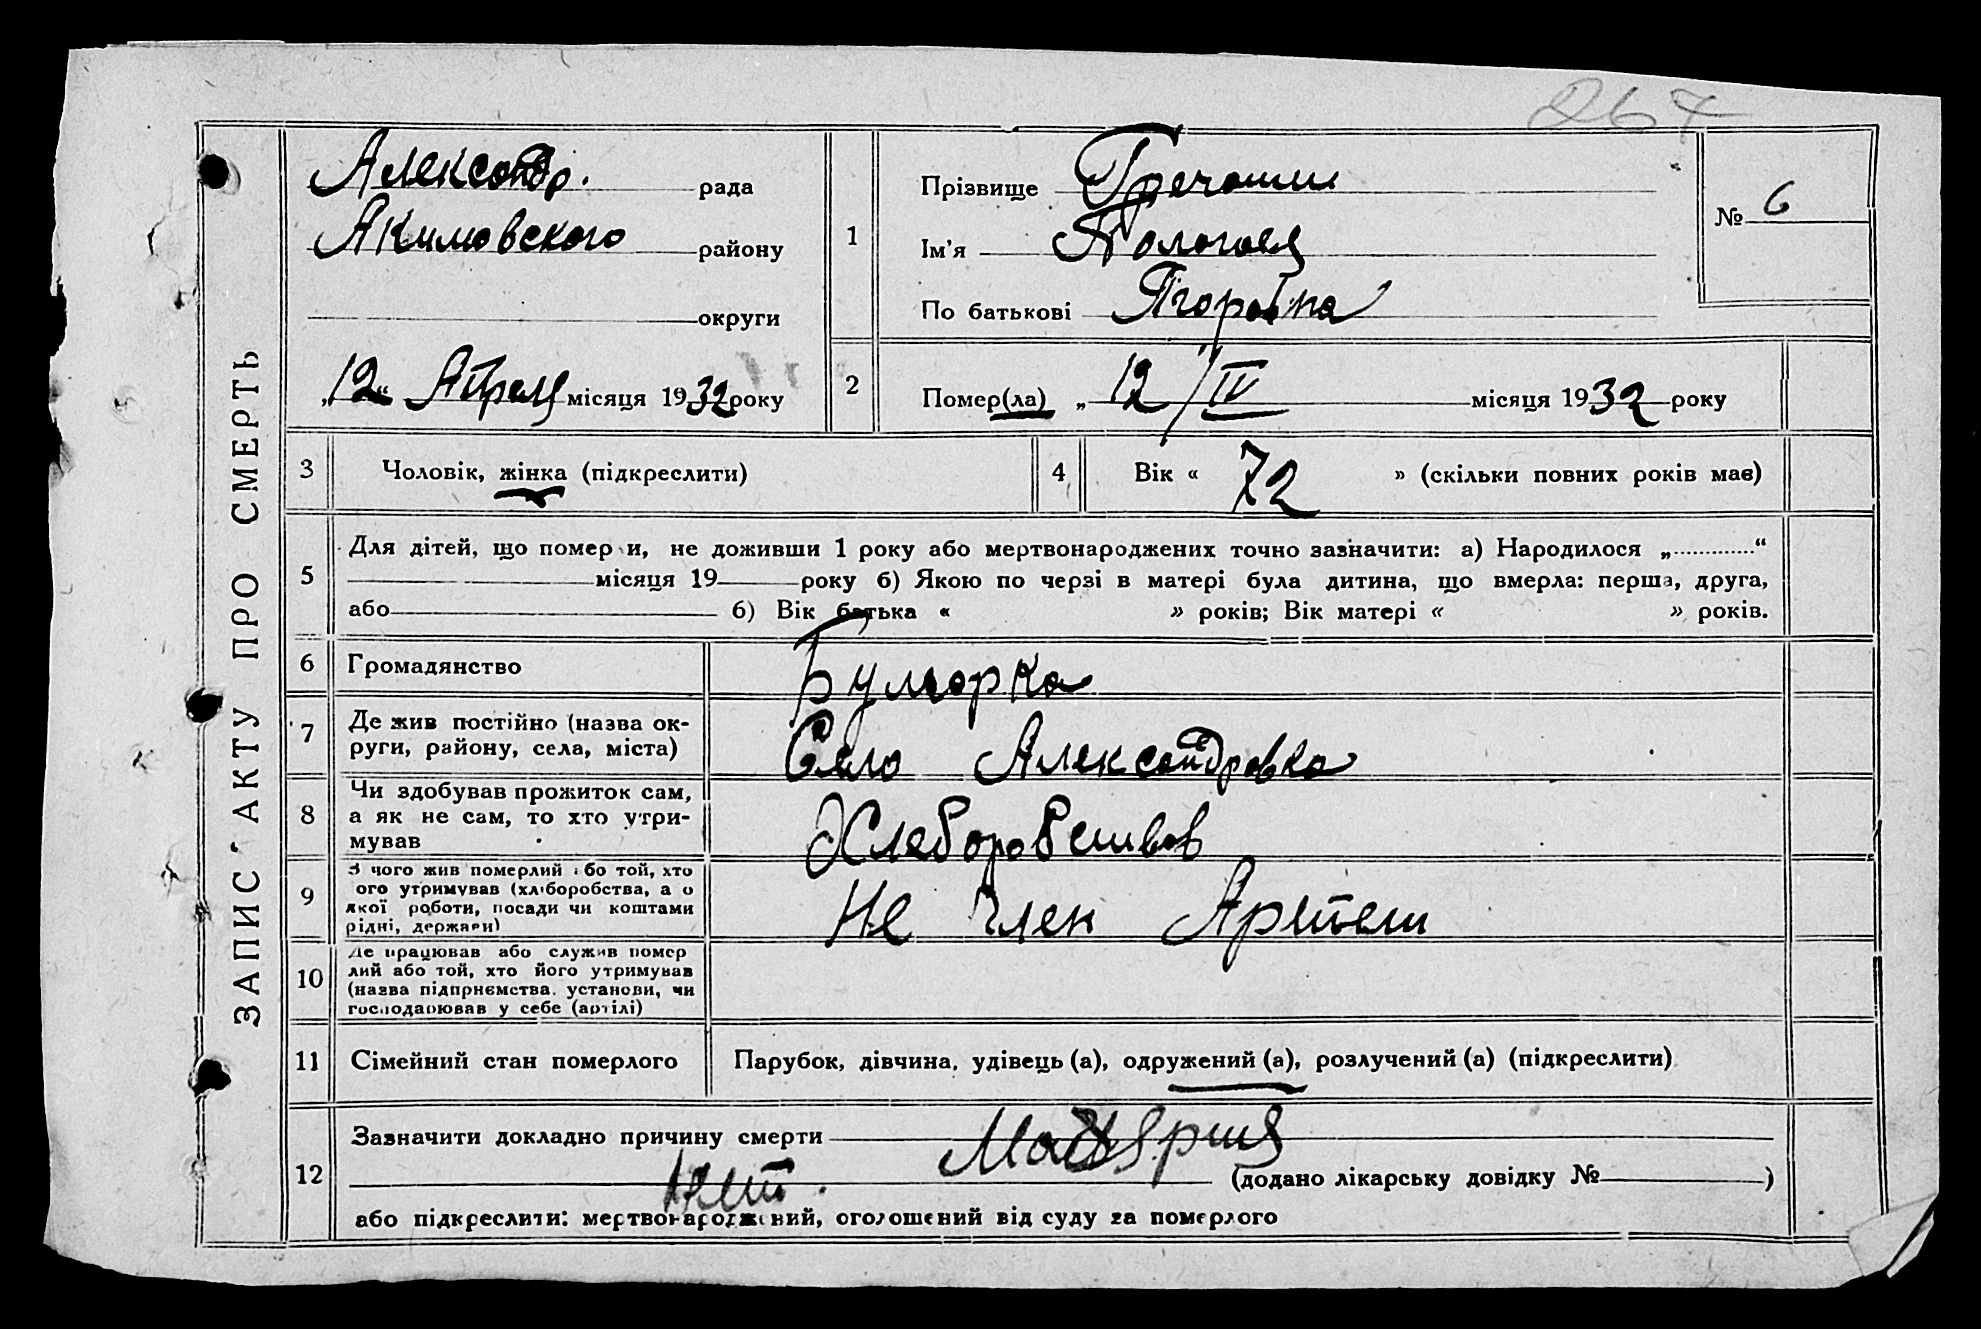 267
ЗАПИС АКТУ ПРО СМЕРТЬ
Александр. рада
Акимовского району
округи
„12“ Апреля місяця 1932 року
1
Прізвище
Ім'я
По батькові Ягоровна
№ 6
2
Помер(ла) „ 12/IV місяця 1932 року
3 Чоловік, жінка (підкреслити)
4 Вік « 72 » (скільки повних років має)
5
Для дітей, що померли, не доживши 1 року або мертвонароджених точно зазначити: а) Народилося „............“
місяця 19 року б) Якою по черзі в матері була дитина, що вмерла: перша, друга,
або б) Вік батька « » років; Вік матері « » років.
6 Громадянство Булгарка
7 Де жив постійно (назва ок-
руги, району, села, міста) Село Александровка
8 Чи здобував прожиток сам,
а як не сам, то хто утри-
мував Хлеборобством
9 З чого жив померлий або той, хто
ого утримував (хліборобства, а о
якої роботи, посади чи коштами
рідні, держави) Не Член Артели
10 Де працював або служив помер
лий або той, хто його утримував
(назва підприємства, установи, чи
господарював у себе (артілі)
11 Сімейний стан померлого Парубок, дівчина, удівець (а), одружений (а), розлучений (а) (підкреслити)
12
Зазначити докладно причину смерти
нет. (додано лікарську довідку № )
або підкреслити: мертвонароджений, оголошений від суду за померлого